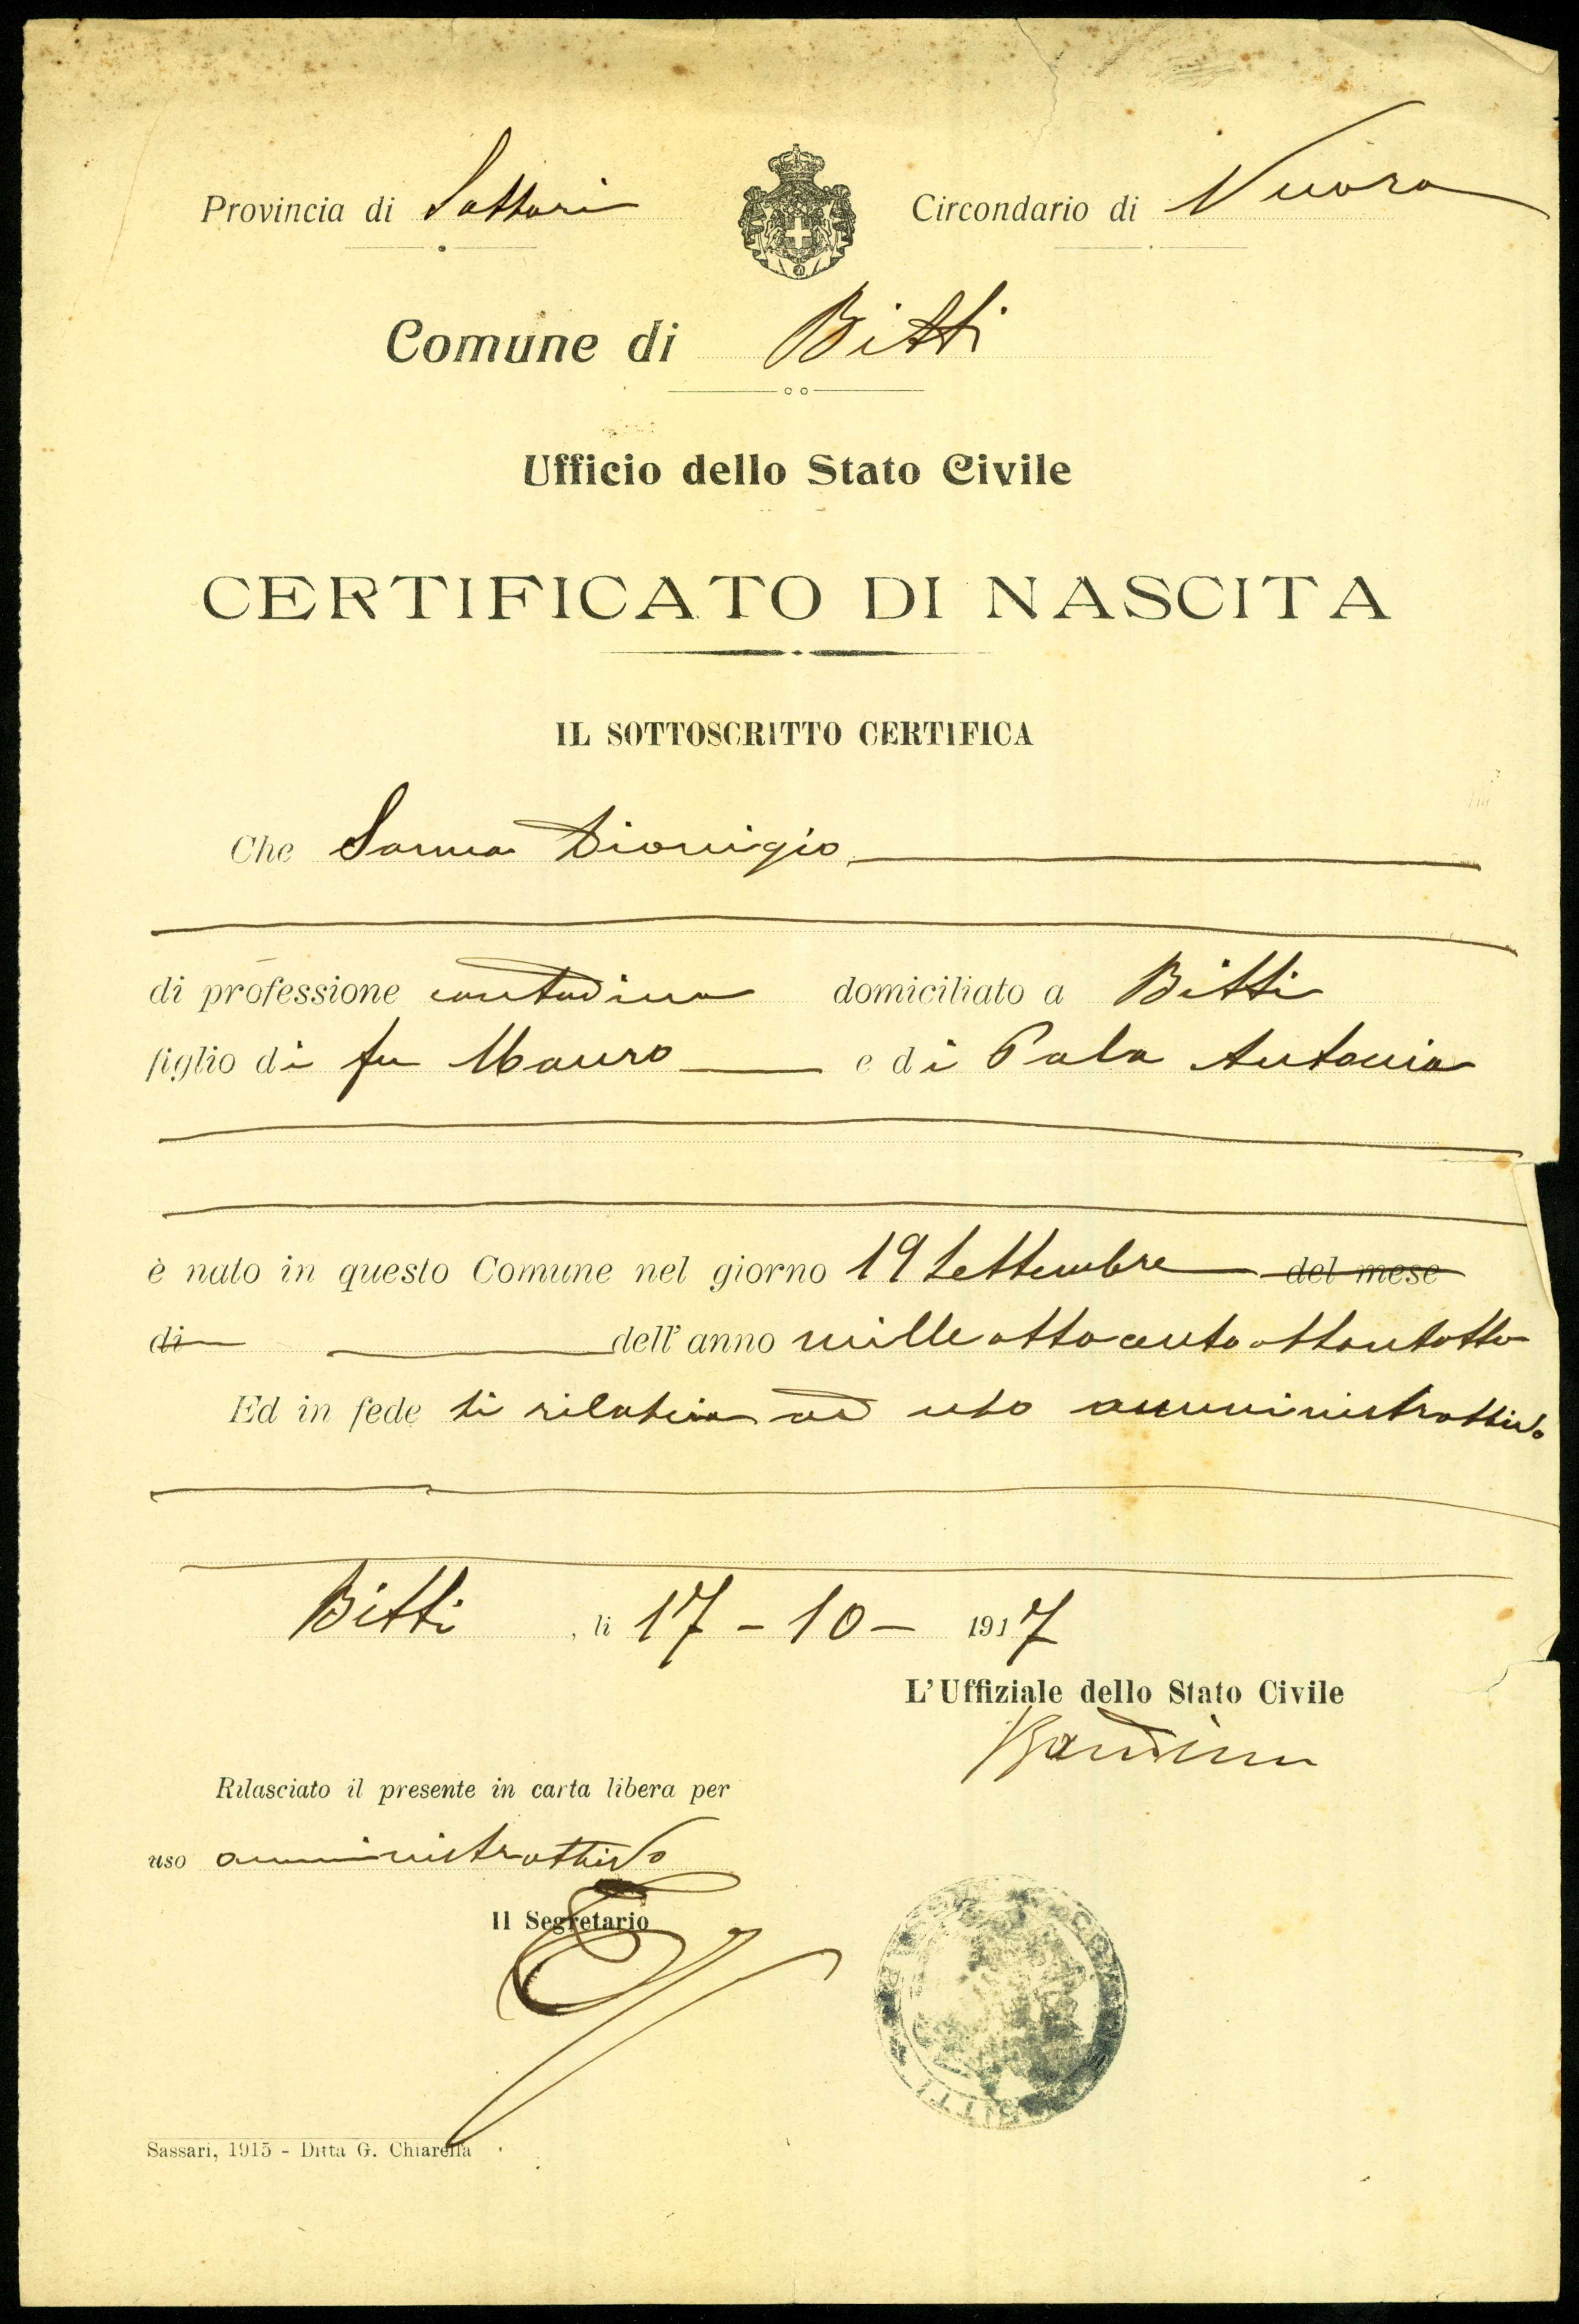 Provincia di Sassari Circondario di Nuoro
Comune di Bitti
Ufficio dello Stato Civile
CERTIFICATO DI NASCITA
IL SOTTOSCRITTO CERTIFICA
Che Sanna Dionigio
di professione contadino domiciliato a Bitti
figlio di fu Mauro e di Pala Antonia
è nato in questo Comune nel giorno 19 Settembre del mese
di dell' anno milleottocentoottantotto
Ed in fede si rilascia ad uso amministrattivo
Bitti, li 17-10-1917
L'Uffiziale dello Stato Civile
Rilasciato il presente in carta libera per
uso amministrattivo
Il Segretario
BITTI
Sassari, 1915 - Ditta G. Chiarella